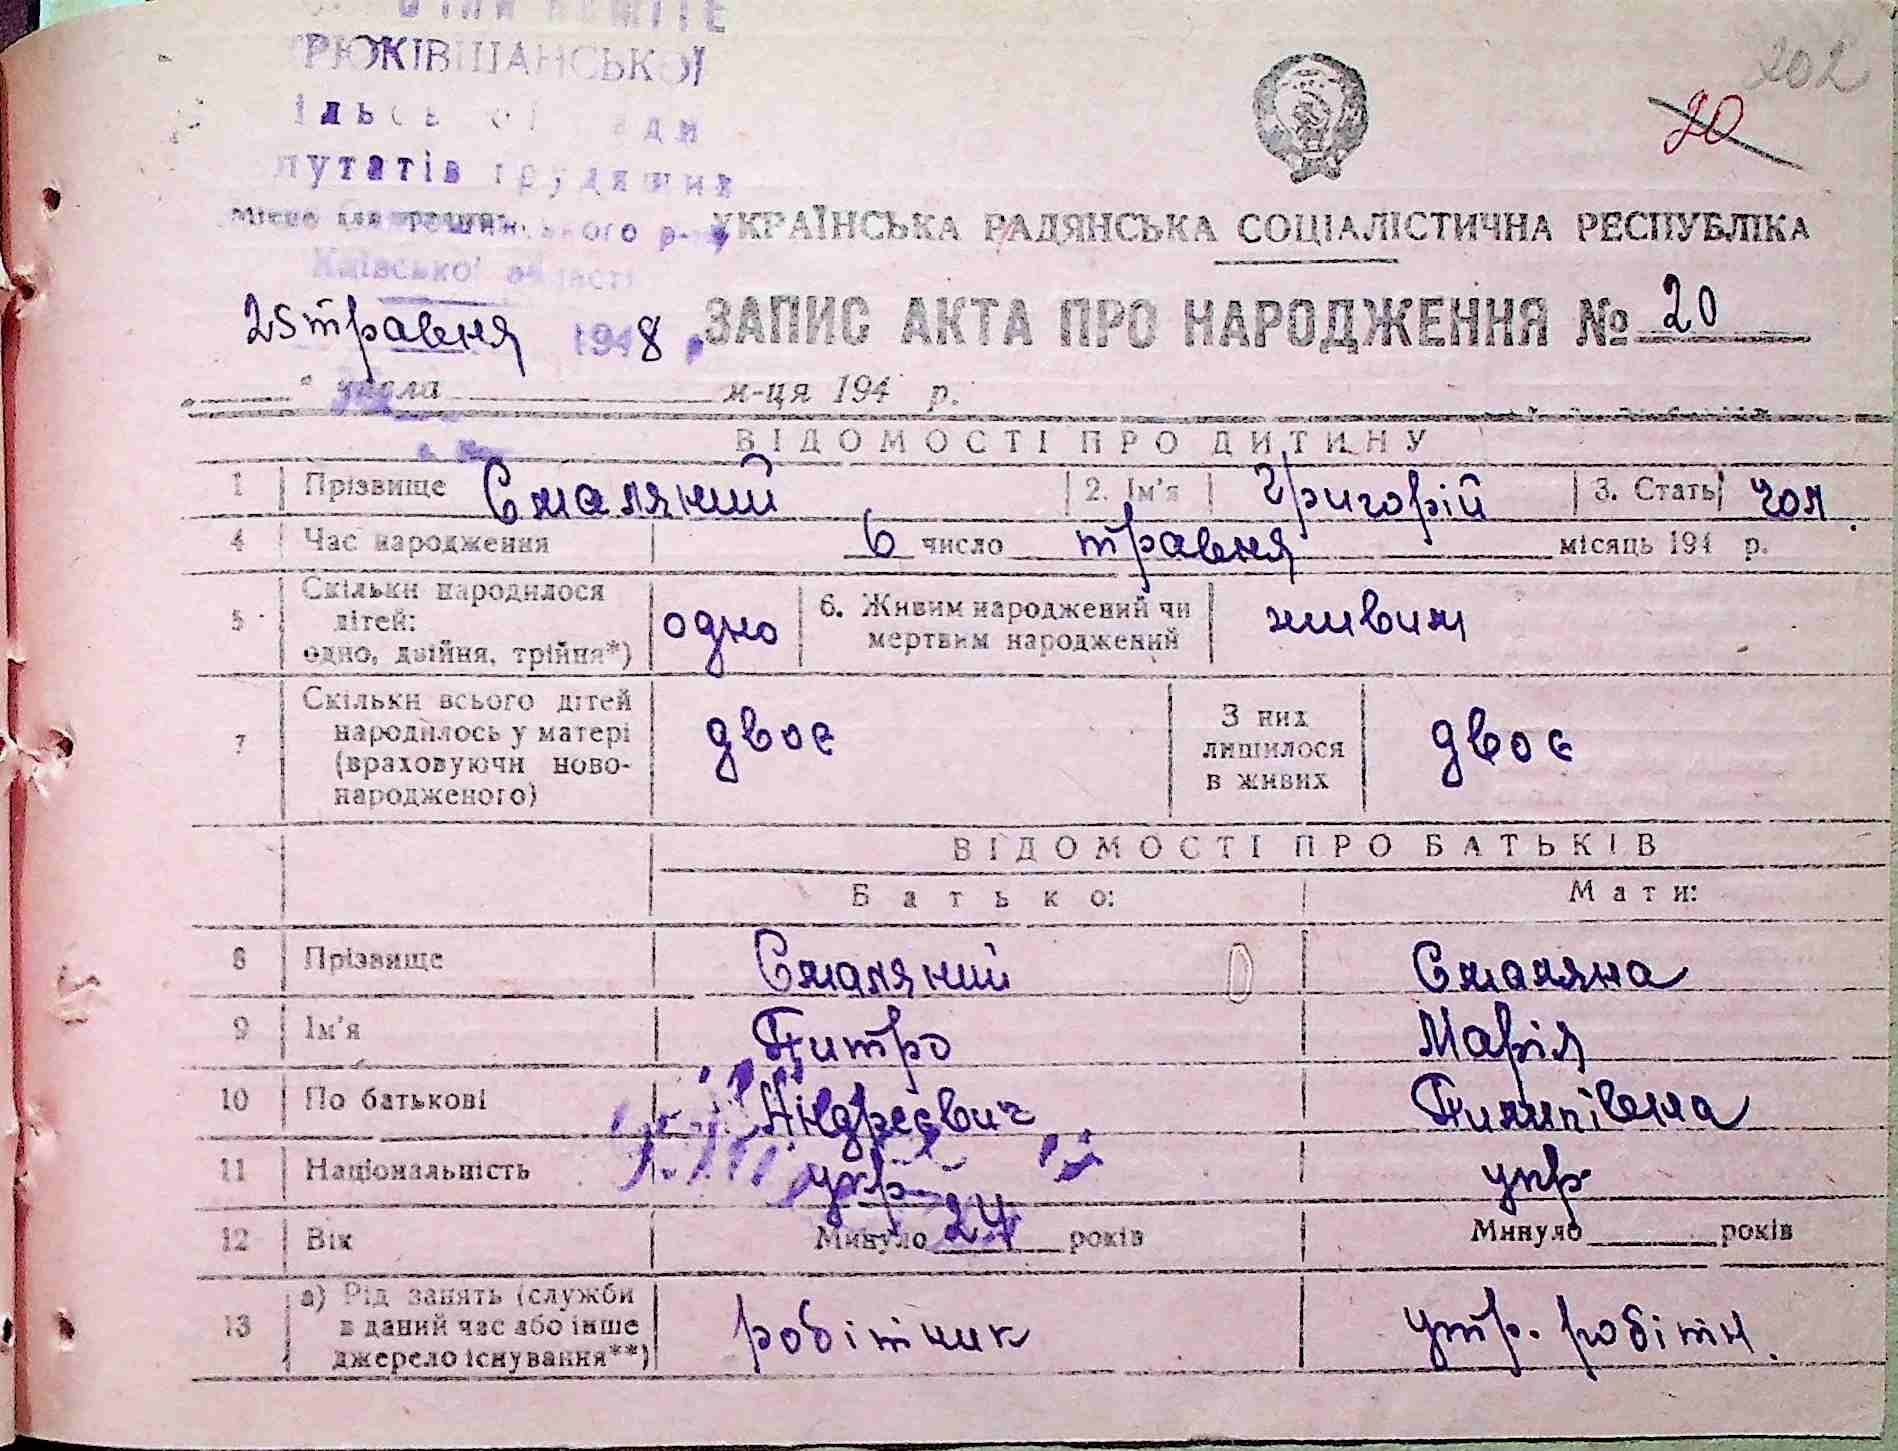 РЮКІВЩАНСЬКОЇ
путатів трудящих
Київської області
202
20
УКРАЇНСЬКА РАДЯНСЬКА СОЦІАЛІСТИЧНА РЕСПУБЛІКА
25 травня 1948 р.
ЗАПИС АКТА ПРО НАРОДЖЕННЯ № 20
" числа м-ця 194 р.
ВІДОМОСТІ ПРО ДИТИНУ
1 Прізвище Смаляний 2. Ім'я Григорій 3. Стать чол.
4 Час народження 6 число травня місяць 194 р.
5 Скільки народилося дітей: одно, двійня, трійня*) одно 6. Живим народжений чи мертвим народжений живим
7 Скільки всього дітей народилось у матері (враховуючи новонародженого) двоє З них лишилося в живих двоє
ВІДОМОСТІ ПРО БАТЬКІВ
Батько: Мати:
8 Прізвище Смаляний Смаляна
9 Ім'я Питро Марія
10 По батькові Андреєвич Пилипівна
11 Національність укр укр
12 Вік Минуло 24 років Минуло років
13 а) Рід занять (служби в даний час або інше джерело існування**) робітник утр. робітн.